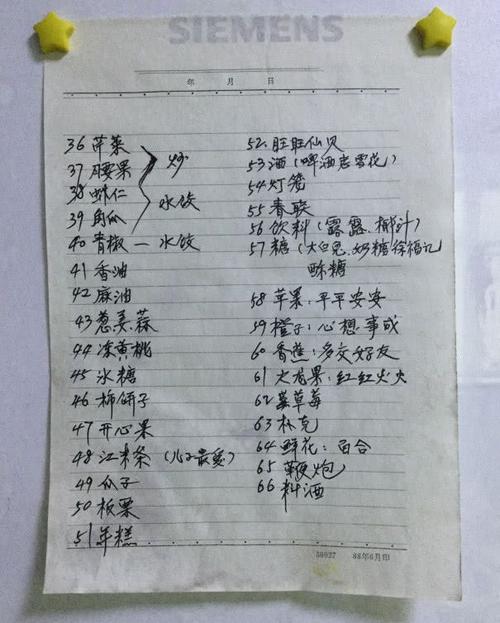 SIEMENS
年 月 日
36 芹菜
37 腰果 炒
38 虾仁
39 角瓜 水饺
40 青椒 — 水饺
41 香油
42 麻油
43 葱姜蒜
44 冻黄桃
45 冰糖
46 柿饼子
47 开心果
48 江米条 (儿子最爱)
49 瓜子
50 板栗
51 年糕
52. 旺旺仙贝
53 酒 (啤酒 雪花)
54 灯笼
55 春联
56 饮料 (露露、椰汁)
57 糖 (大白兔、奶糖 徐福记
酥糖
58 苹果: 平平安安
59 橙子: 心想事成
60 香蕉: 多交好友
61 火龙果: 红红火火
62 草莓
63 扑克
64 鲜花: 百合
65 鞭炮
66 料酒
88年6月印